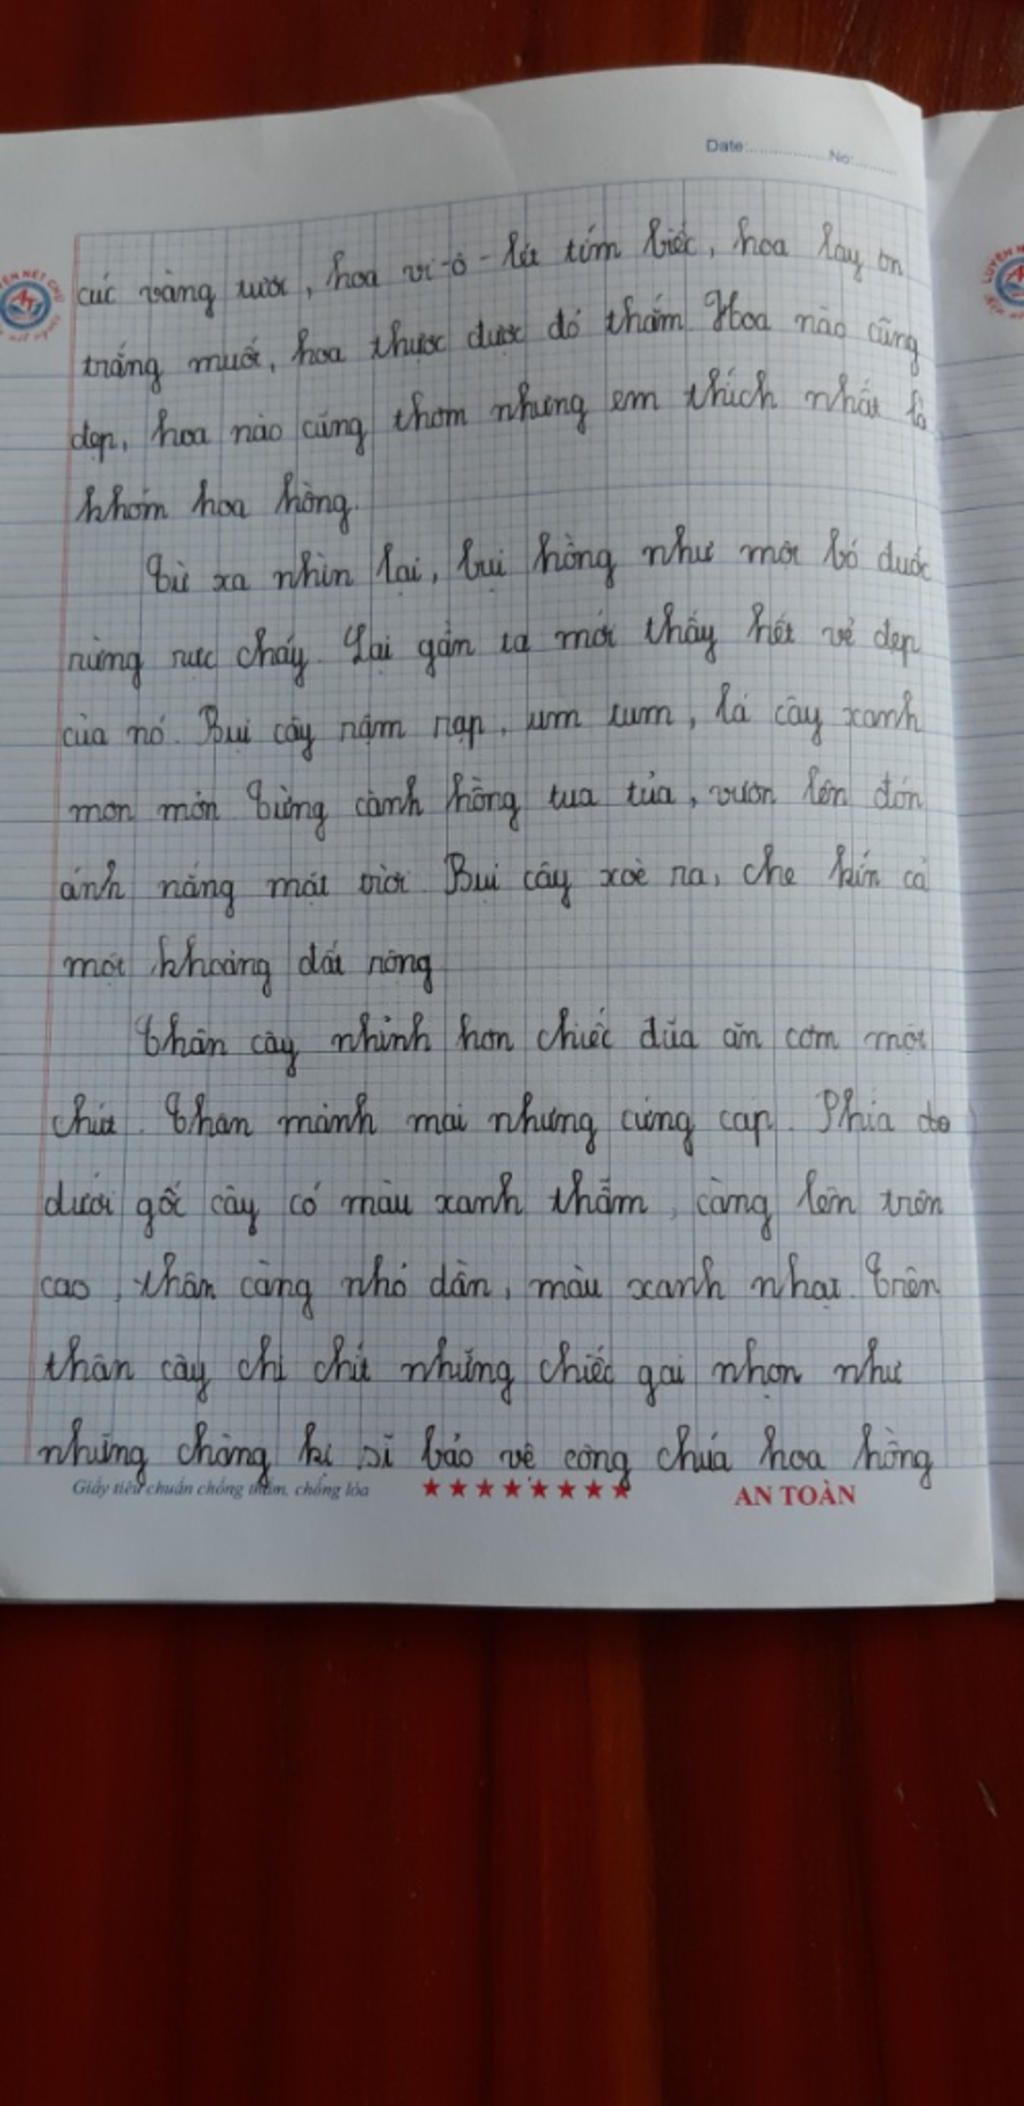 Date:............... No:.........
cúc vàng tươi, hoa vi-ô-lét tím biếc, hoa lay ơn
trắng muốt, hoa thược dược đỏ thắm. Hoa nào cũng
đẹp, hoa nào cũng thơm nhưng em thích nhất là
khóm hoa hồng.
Từ xa nhìn lại, bụi hồng như một bó đuốc
rừng rực cháy. Lại gần ta mới thấy hết vẻ đẹp
của nó. Bụi cây nậm nạp, um tum, lá cây xanh
mơn mởn. Từng cành hồng tua tủa, vươn lên đón
ánh nắng mặt trời. Bụi cây xoè ra, che kín cả
một khoảng đất rộng
Thân cây nhỉnh hơn chiếc đũa ăn cơm một
chút. Thân mảnh mai nhưng cứng cáp. Phía
dưới gốc cây có màu xanh thẫm, càng lên trên
cao, thân càng nhỏ dần, màu xanh nhạt. Trên
thân cây chi chít những chiếc gai nhọn như
những chàng kị sĩ bảo vệ công chúa hoa hồng
Giấy tiêu chuẩn chống thấm, chống lóa ★★★★★★★★ AN TOÀN